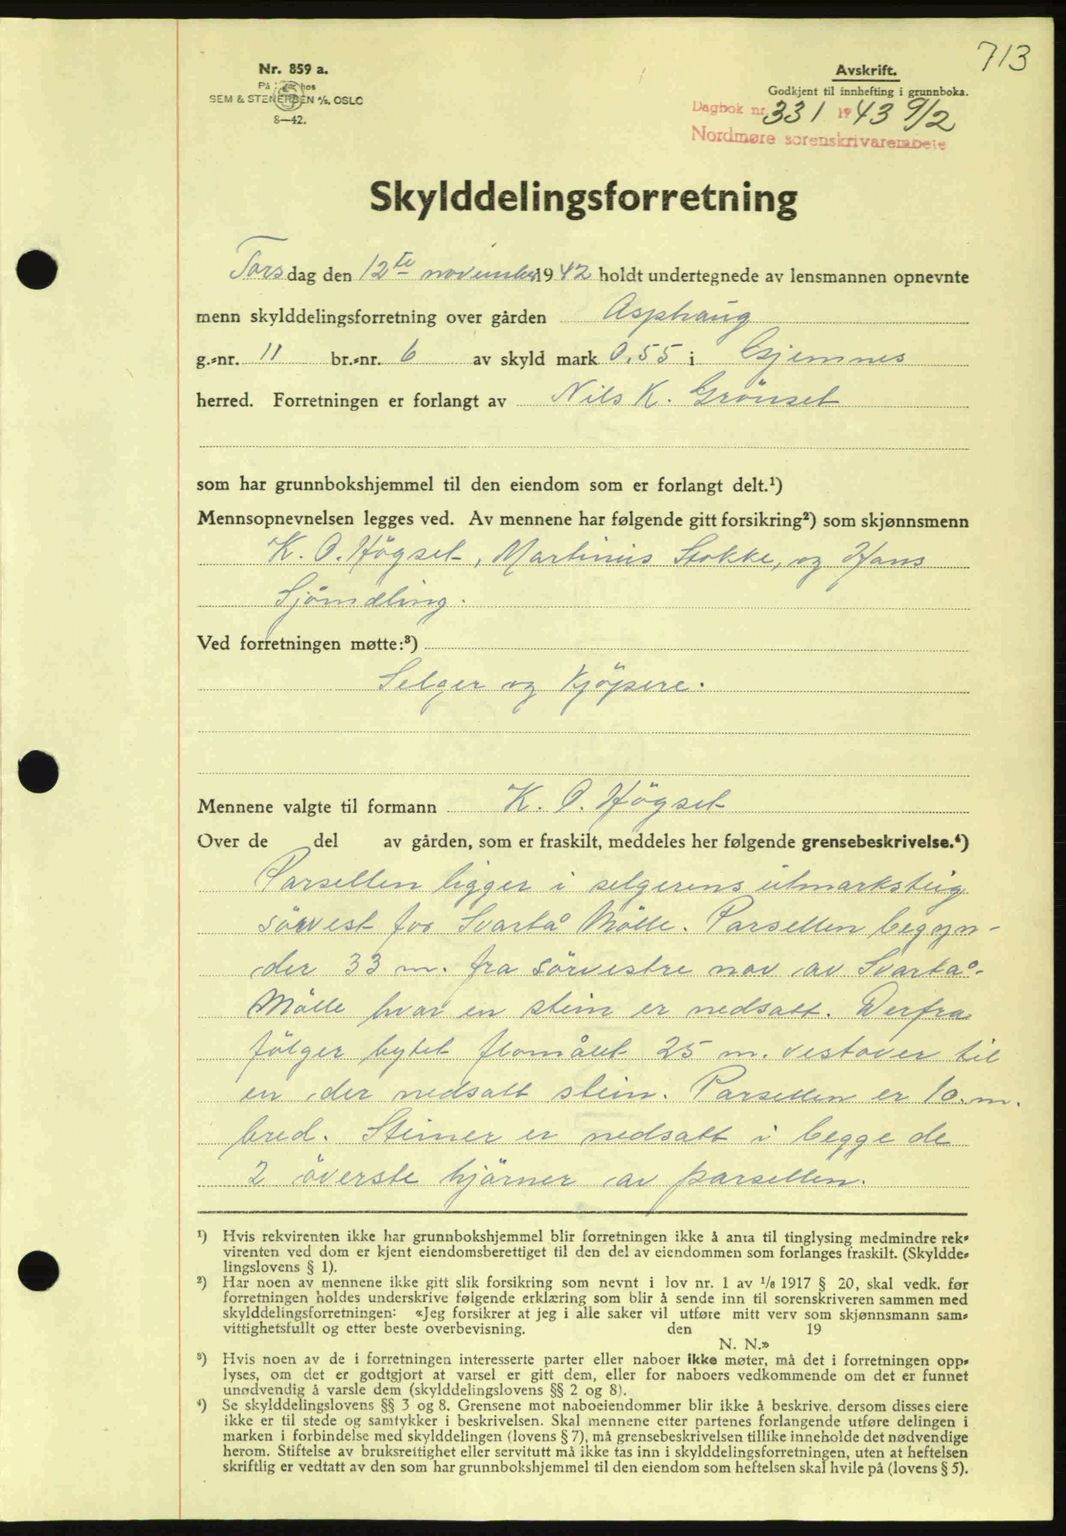 713
Nr. 859 a.
På hos
SEM & STENERSEN A/S, OSLO
8—42.
Avskrift.
Godkjent til innhefting i grunnboka.
Dagbok nr. 331 1943 9/2
Nordmøre sorenskrivarembete
Skylddelingsforretning
Torsdag den 12te november 1942 holdt undertegnede av lensmannen opnevnte
menn skylddelingsforretning over gården Asphaug
g.-nr. 11 br.-nr. 6 av skyld mark 0.55 i Gjemnes
herred. Forretningen er forlangt av Nils K. Grönset
som har grunnbokshjemmel til den eiendom som er forlangt delt.¹)
Mennsopnevnelsen legges ved. Av mennene har følgende gitt forsikring²) som skjønnsmenn
K. O. Högset, Martinus Stokke, og Hans
Sjömæling.
Ved forretningen møtte:³)
Selger og Kjöpere.
Mennene valgte til formann K. O. Högset
Over de del av gården, som er fraskilt, meddeles her følgende grensebeskrivelse.⁴)
Parsellen ligger i selgerens utmarksteig
sörvest for Svartå Mölle. Parsellen begyn-
der 33 m. fra sörvestre nov av Svartå-
Mölle hvor en stein er nedsatt. Derfra
fölger bytet flomålet 25 m. vestover til
en der nedsatt stein. Parsellen er 10. m.
bred. Steiner er nedsatt i begge de
2 överste hjörner av parsellen.
¹) Hvis rekvirenten ikke har grunnbokshjemmel blir forretningen ikke å anta til tinglysing medmindre rek-
virenten ved dom er kjent eiendomsberettiget til den del av eiendommen som forlanges fraskilt. (Skyldde-
lingslovens § 1).
²) Har noen av mennene ikke gitt slik forsikring som nevnt i lov nr. 1 av 1/8 1917 § 20, skal vedk. før
forretningen holdes underskrive følgende erklæring som blir å sende inn til sorenskriveren sammen med
skylddelingsforretningen: «Jeg forsikrer at jeg i alle saker vil utføre mitt verv som skjønnsmann sam-
vittighetsfullt og etter beste overbevisning. den 19
N. N.»
³) Hvis noen av de i forretningen interesserte parter eller naboer ikke møter, må det i forretningen opp-
lyses, om det er godtgjort at varsel er gitt dem, eller for naboers vedkommende om det er funnet
unødvendig å varsle dem (skylddelingslovens §§ 2 og 8).
⁴) Se skylddelingslovens §§ 3 og 8. Grensene mot naboeiendommer blir ikke å beskrive, dersom disses eiere
ikke er til stede og samtykker i beskrivelsen. Skal mennene etter partenes forlangende utføre delingen i
marken i forbindelse med skylddelingen (lovens § 7), må grensebeskrivelsen tillike inneholde det nødvendige
herom. Stiftelse av bruksrettighet eller servitutt må ikke tas inn i skylddelingsforretningen, uten at heftelsen
skriftlig er vedtatt av den som har grunnbokshjemmel til den eiendom som heftelsen skal hvile på (lovens § 5).